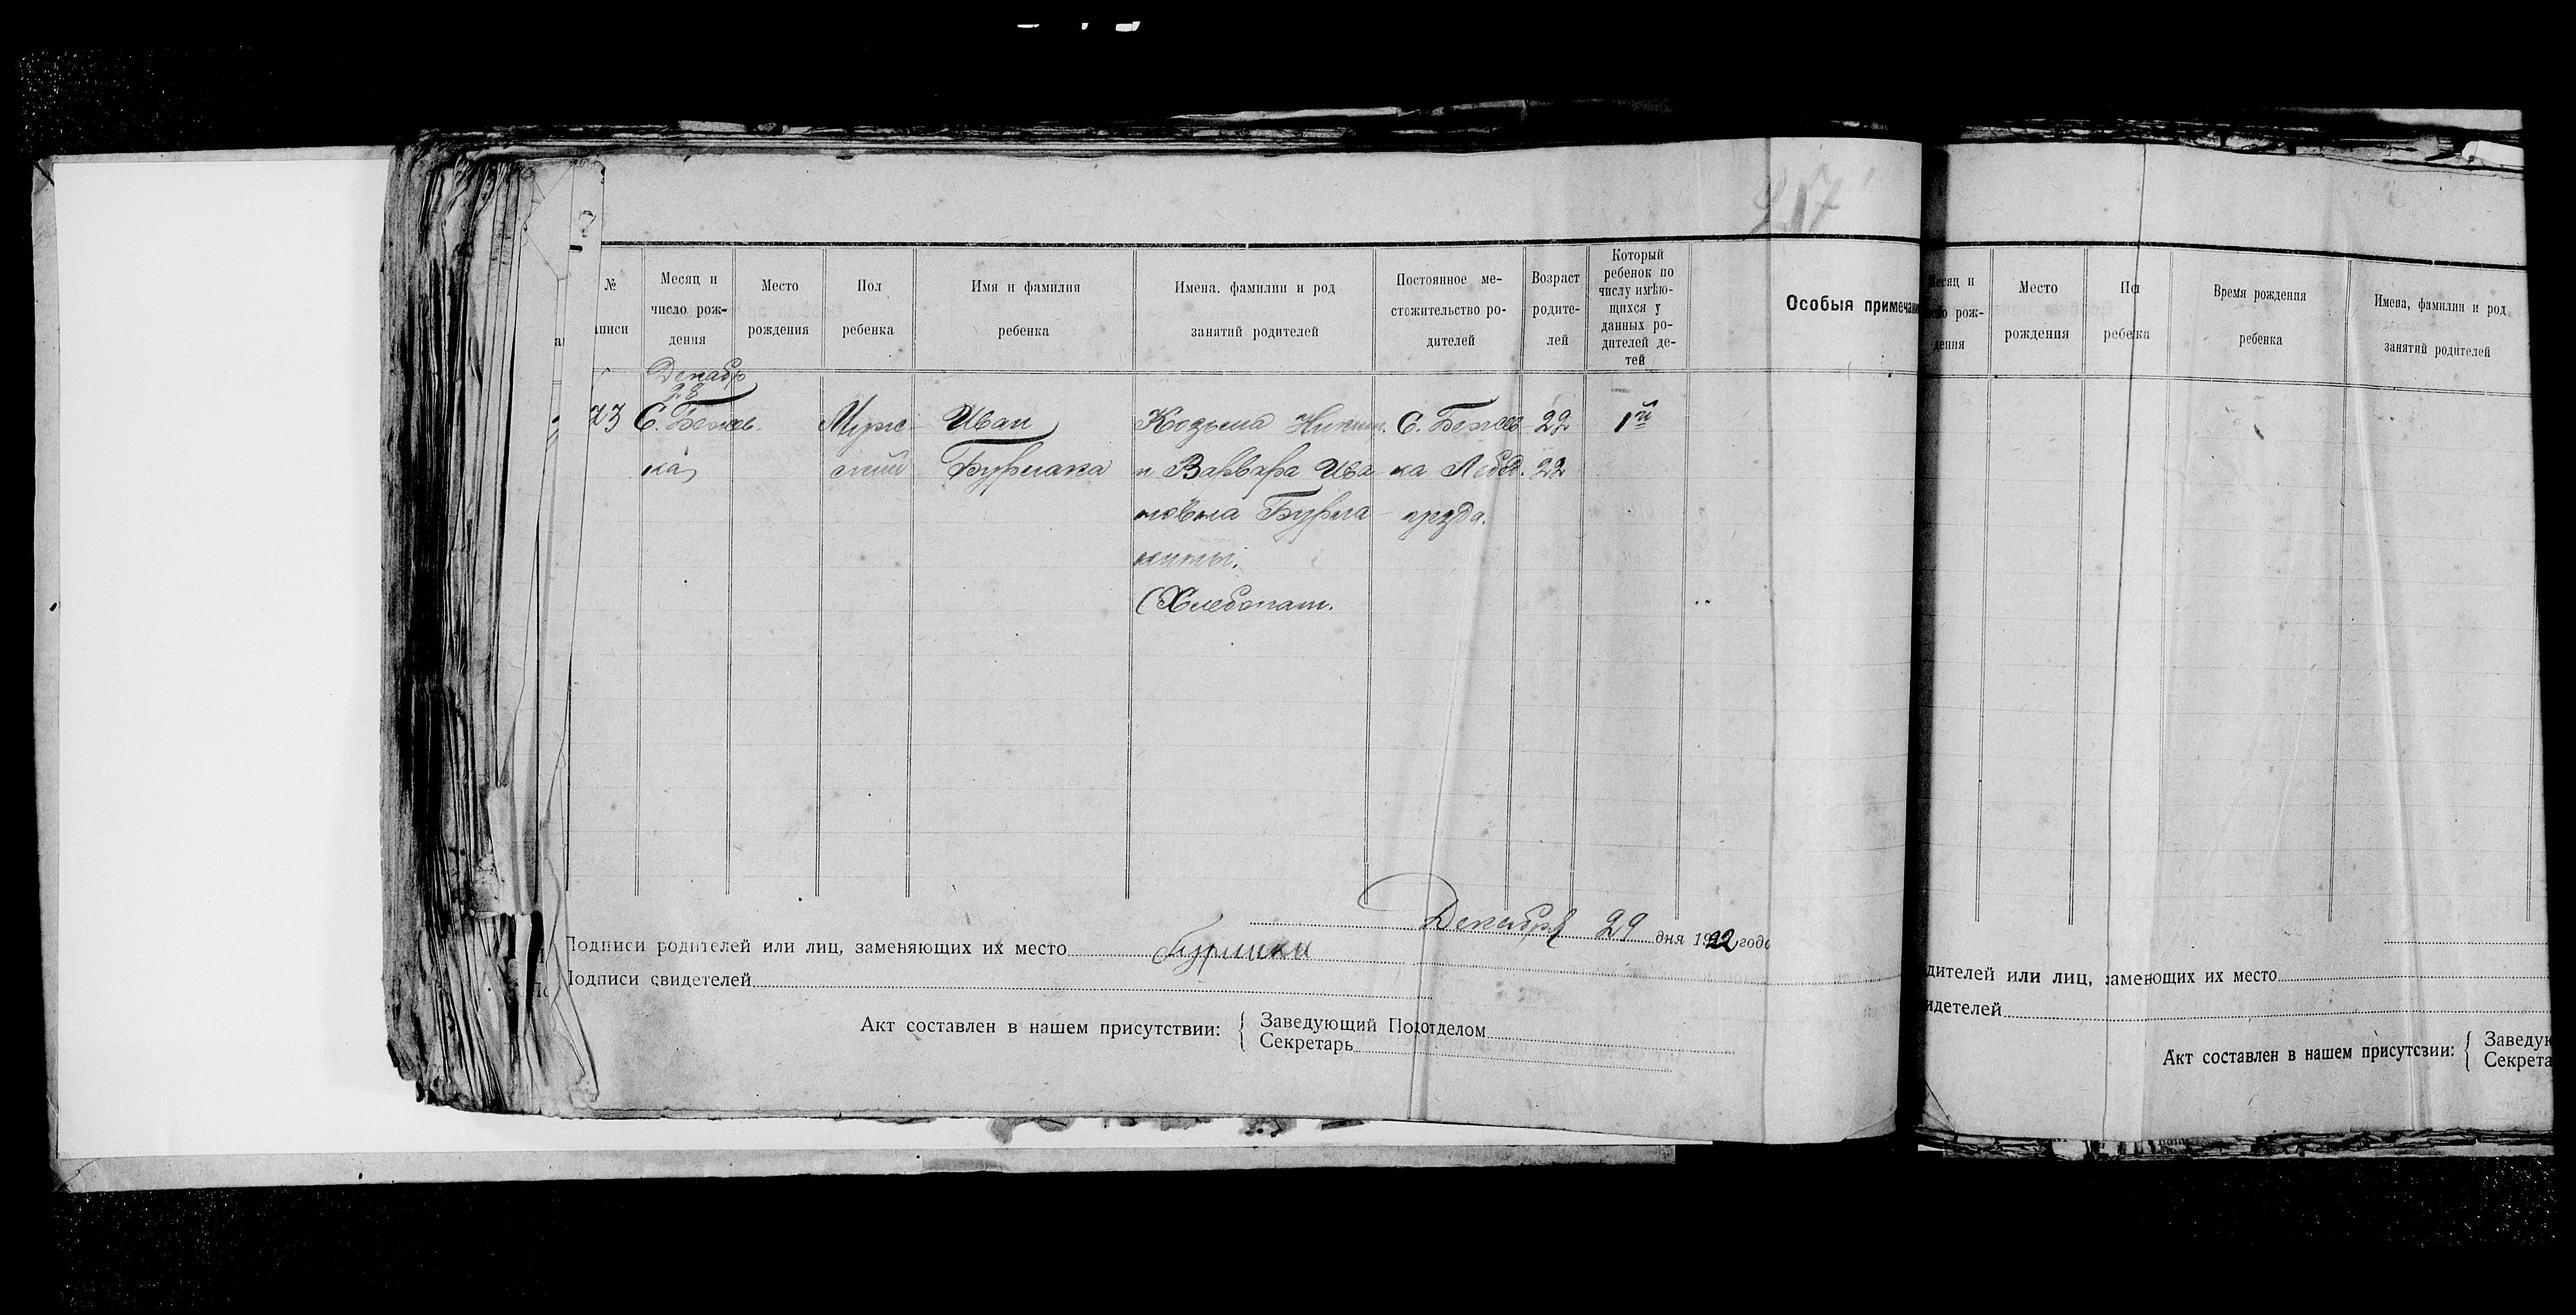 №
Месяц и
число рож-
дения
Место
рождения
Пол
ребенка
Имя и фамилия
ребенка
Имена, фамилии и род
занятий родителей
Постоянное ме-
стожительство ро-
дителей
Возраст
родите-
лей
Который
ребенок по
числу имѣю-
щихся у
данных ро-
дителей де-
тей
Особыя примечани
Декабр
28
23
С.
ка
Муж
ской
Иван
Бурлака
Козьма Никит.
и Варвара Ива
новна Бурла
(Хлебопаш.
С.
ка Лебед.
22
22
1й
Декабря 29 дня 1922 года
Подписи родителей или лиц, заменяющих их место Бурлака
Подписи свидетелей
Акт составлен в нашем присутствии:
Заведующий Подотделом
Секретарь
есяц и
рож-
дения
Место
рождения
Пол
ребенка
Время рождения
ребенка
Имена, фамилии и род
занятий родителей
дителей или лиц, заменющих их место
идетелей
Акт составлен в нашем присутсвии:
Заведую
Секрета